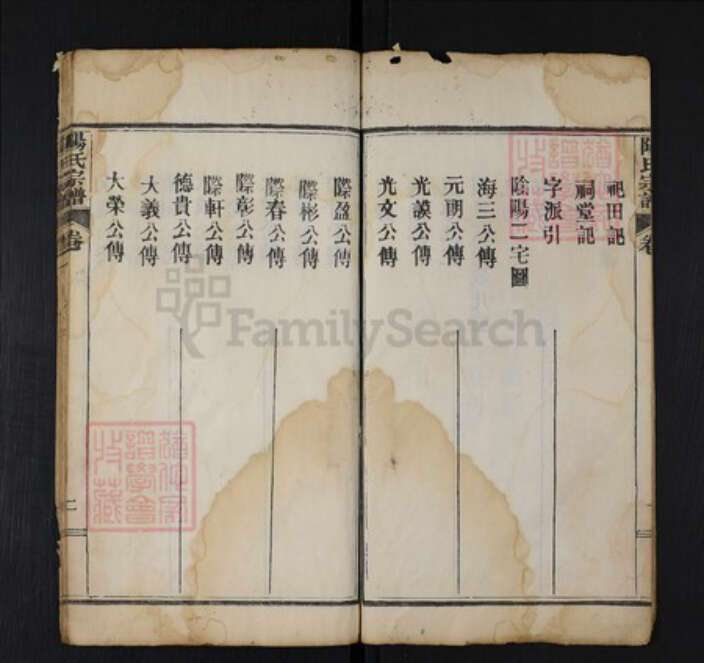 祀田記
祠堂記
字派引
陰陽二宅圖
海三公傳
元朗公傳
光謨公傳
光文公傳
際盈公傳
際彬公傳
際春公傳
際彰公傳
際軒公傳
德貴公傳
大義公傳
大榮公傳
陽氏宗譜
卷
二
FamilySearch